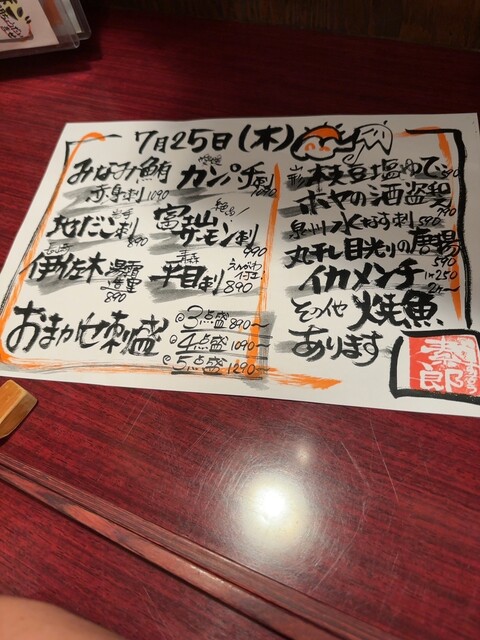 7月25日(木)
みなみ鮪
赤身刺 1090
カンパチ刺
地だこ刺
890
富士山
サーモン刺
990
伊佐木
890
平目刺
えんがわ付
890
おまかせ刺盛
3点盛 890〜
4点盛 1090〜
5点盛 1290〜
山形 枝豆塩ゆで
ホヤの酒盗和え
泉州水なす刺 590
丸干し目光りの唐揚
590
イカメンチ
1ヶ250
2ヶ〜
その他 焼魚
あります
郎